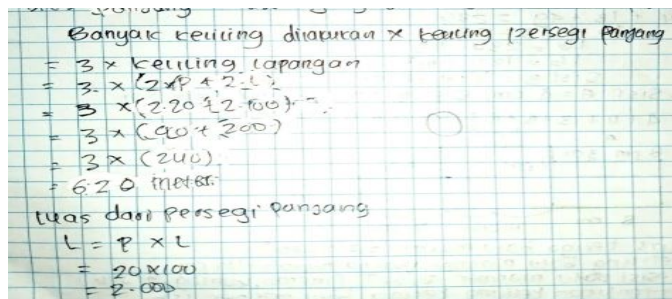 Banyak keliling dilakukan × keliling persegi panjang
= 3 × keliling lapangan
= 3 × (2×P + 2.L)
= 3 × (2.20 + 2.100)
= 3 × (40 + 200)
= 3 × (240)
= 620 meter.
Luas dari persegi panjang
L = P × L
= 20×100
= 2.000